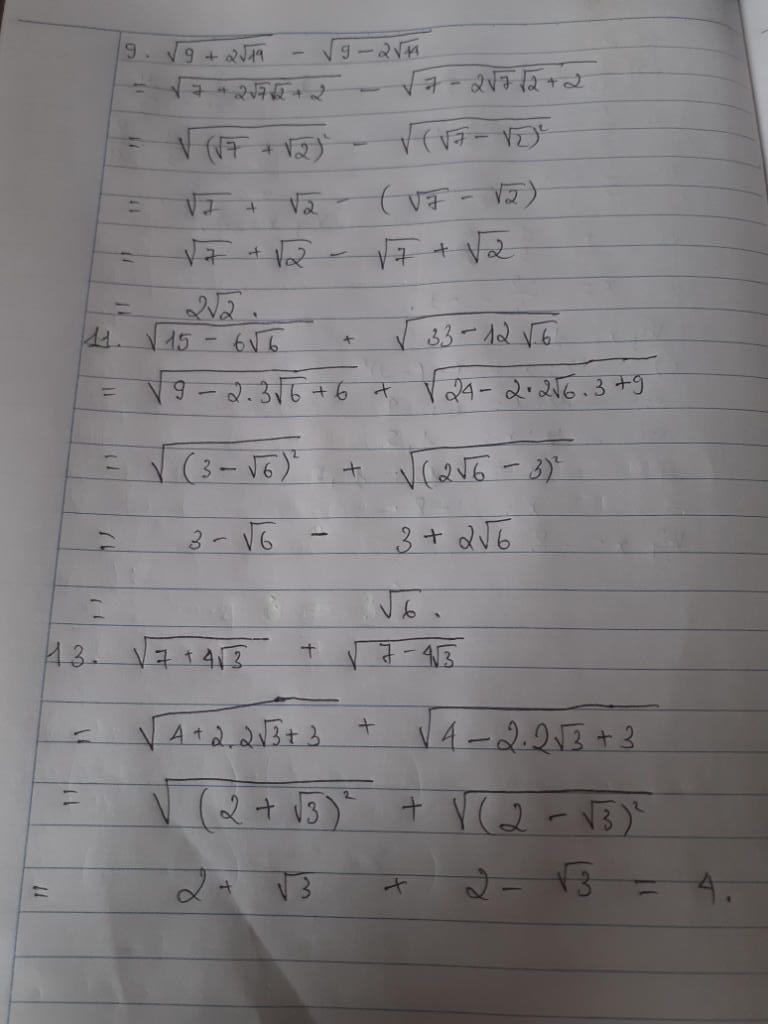 9. √(9 + 2√14) - √(9 - 2√14)
= √(7 + 2√7√2 + 2) - √(7 - 2√7√2 + 2)
= √((√7 + √2)²) - √((√7 - √2)²)
= √7 + √2 - (√7 - √2)
= √7 + √2 - √7 + √2
= 2√2.
11. √(15 - 6√6) + √(33 - 12√6)
= √(9 - 2.3√6 + 6) + √(24 - 2.2√6.3 + 9)
= √((3 - √6)²) + √((2√6 - 3)²)
= 3 - √6 - 3 + 2√6
= √6.
13. √(7 + 4√3) + √(7 - 4√3)
= √(4 + 2.2√3 + 3) + √(4 - 2.2√3 + 3)
= √((2 + √3)²) + √((2 - √3)²)
= 2 + √3 + 2 - √3 = 4.